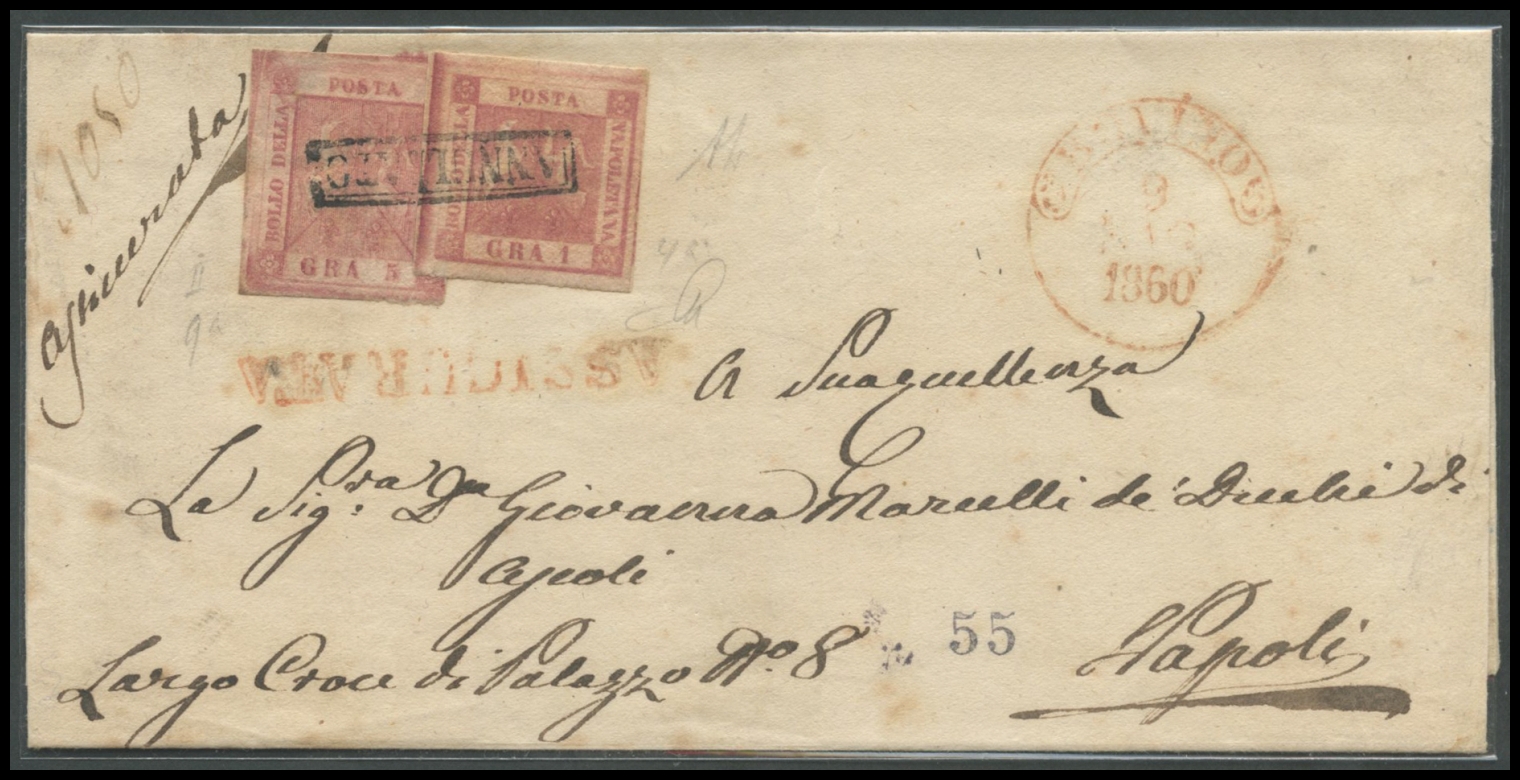 1050
Assicurata
POSTA
BOLLO DELLA
GRA 5
POSTA
BOLLO DELLA
NAPOLETANA
GRA 1
ANNULLATO
9
1860
ASSICURATA
A Sua Eccellenza
La Sig.ra D.na Giovanna Marulli de' Duchi di
Ascoli
Largo Croce di Palazzo No. 8
55
Napoli